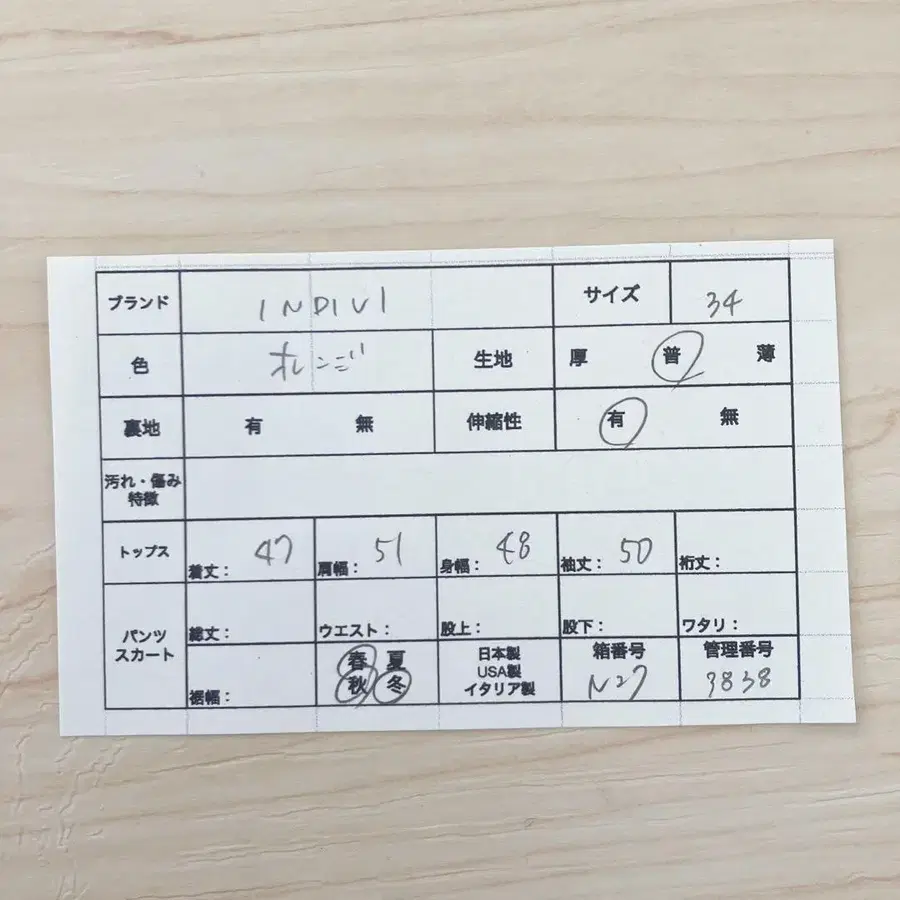 ブランド INDIVI サイズ 34
色 オレンジ 生地 厚 普 薄
裏地 有 無 伸縮性 有 無
汚れ・傷み
特徴
トップス 着丈： 47 肩幅： 51 身幅： 48 袖丈： 50 裄丈：
パンツ
スカート
総丈： ウエスト： 股上： 股下： ワタリ：
裾幅：
春 夏
秋 冬
日本製
USA製
イタリア製
箱番号
N27
管理番号
3838